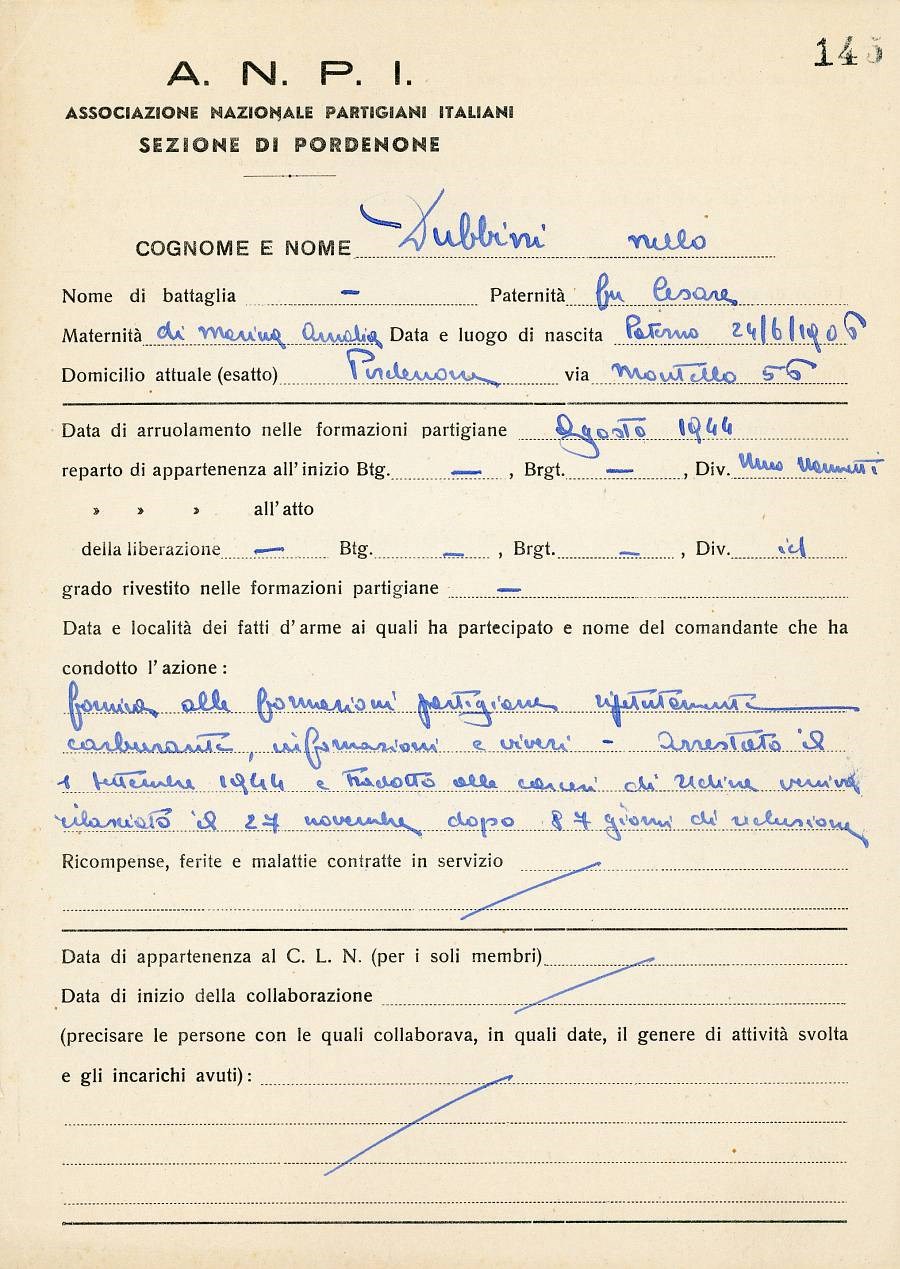 145
A. N. P. I.
ASSOCIAZIONE NAZIONALE PARTIGIANI ITALIANI
SEZIONE DI PORDENONE
COGNOME E NOME Dubbini nello
Nome di battaglia — Paternità fu Cesare
Maternità di Marina Amalia Data e luogo di nascita Paterno 24/6/1906
Domicilio attuale (esatto) Pordenone via Montello 56
Data di arruolamento nelle formazioni partigiane Agosto 1944
reparto di appartenenza all'inizio Btg. — , Brgt. — , Div. Nino Nannetti
» » » all'atto
della liberazione — Btg. — , Brgt. — , Div. id
grado rivestito nelle formazioni partigiane —
Data e località dei fatti d'arme ai quali ha partecipato e nome del comandante che ha
condotto l'azione :
forniva alle formazioni partigiane ripetutamente
carburante, informazioni e viveri - Arrestato il
1 settembre 1944 e tradotto alle carceri di Udine veniva
rilasciato il 27 novembre dopo 87 giorni di reclusione
Ricompense, ferite e malattie contratte in servizio
Data di appartenenza al C. L. N. (per i soli membri)
Data di inizio della collaborazione
(precisare le persone con le quali collaborava, in quali date, il genere di attività svolta
e gli incarichi avuti) :